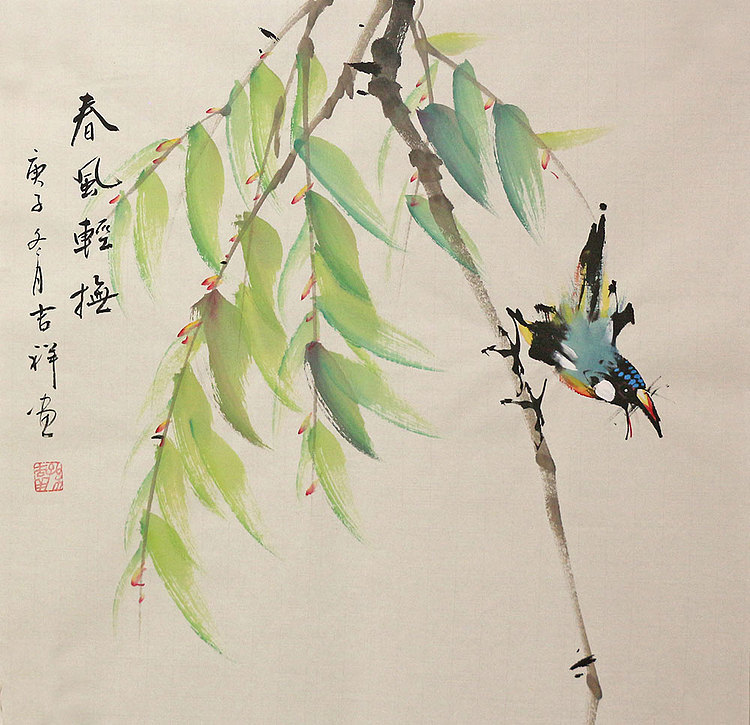 春風輕撫
庚子冬月吉祥畫